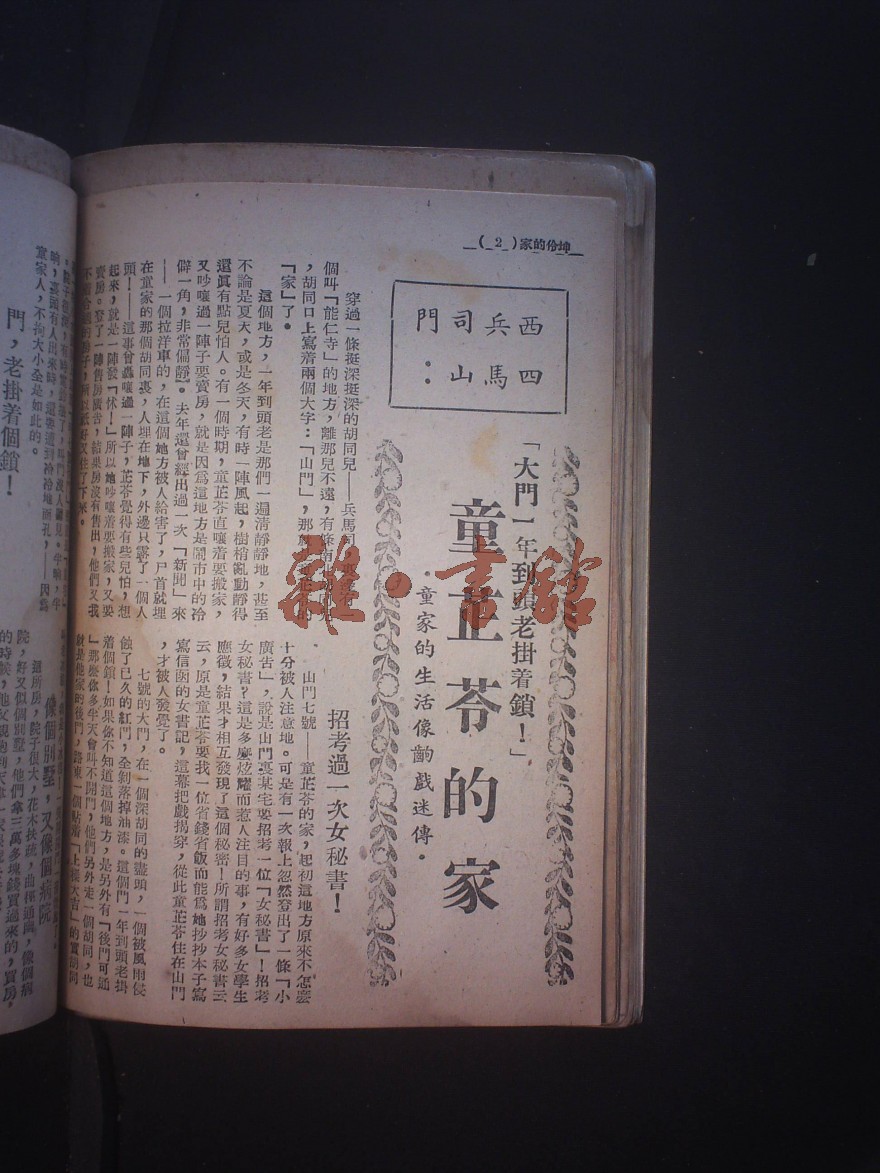 坤伶的家(2)
西四
兵馬
司山
門:
「大門一年到頭老掛着鎖!」
童芷苓的家
·童家的生活像齣戲迷傳·
穿過一條挺深挺深的胡同兒——兵馬司,
個叫「能仁寺」的地方,離那兒不遠,有條南
,胡同口上寫着兩個大字:「山門」,那就
「家」了。
這個地方,一年到頭老是那們一遍清靜靜地,甚至
不論是夏天,或是冬天,有時一陣風起,樹梢亂動靜得
還眞有點兒怕人。有一個時期,童芷苓直嚷着要搬家,
又吵嚷過一陣子要賣房,就是因爲這地方是鬧市中的冷
僻一角,非常偏靜】。去年還曾經出過一次「新聞」來
——一個拉洋車的,在這個地方被人給害了,尸首就埋
在童家的那個胡同裏,人埋在地下,外邊只露了一個人
頭!——這事曾轟嚷過一陣子,芷苓覺得有些兒怕,想
起來,就是一陣發「怵!」所以她吵嚷着要搬家,又要
賣房。登了一陣售房廣告,結果房沒有售出,他們又找
招考過一次女秘書!
山門七號——童芷苓的家,起初這地方原來不怎麼
十分被人注意地。可是有一次報上忽然登出了一條「小
廣告」,說是山門裏某宅要招考一位「女秘書」!招考
女秘書?這是多麼炫耀而惹人注目的事,有好多女學生
應徵,結果才相互發現了這個秘密!所謂招考女秘書云
云,原是童芷苓要找一位省錢省飯而能爲她抄抄本子寫
寫信函的女書記,這幕把戲揭穿,從此童芷苓住在山門
,才被人發覺了。
七號的大門,在一個深胡同的盡頭,一個被風雨侵
蝕了已久的紅門,全剝落掉油漆。這個門一年到頭老掛
着個鎖!如果你不知道這個地方,是另外有「後門可通
」那麼你多半天會叫不開門,他們另外走一個胡同,也
就是他家的後門,路東一個帖着「上樑大吉」的
像個別墅,又像個病院
這所房,院子很大,花木扶疏,曲徑通幽,像個病
院,好又似個別墅,他們拿三萬多塊錢買過來的,買房
門,老掛着個鎖!
响,裏頭有人出來時,還要遭到冷冷地面孔,——因爲
童家人,不拘大小全是如此的。
雜·書館